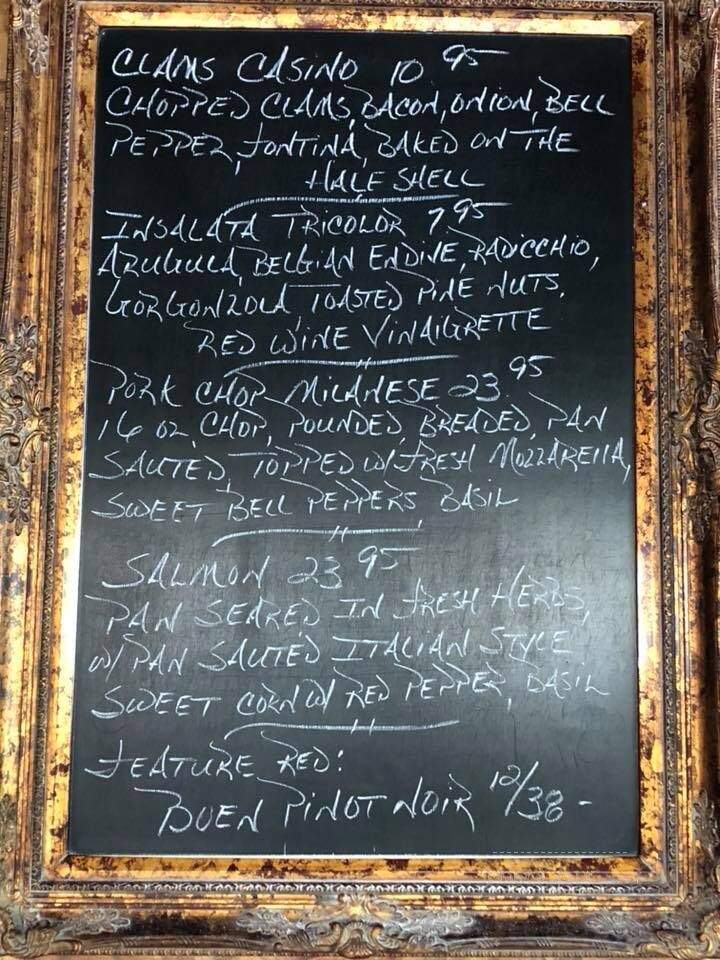 CLAMS CASINO 10 95
CHOPPED CLAMS, BACON, ONION, BELL
PEPPER, FONTINA, BAKED ON THE
HALF SHELL
INSALATA TRICOLOR 7 95
ARUGULA, BELGIAN ENDIVE, RADICCHIO,
GORGONZOLA, TOASTED PINE NUTS,
RED WINE VINAIGRETTE
PORK CHOP MILANESE 23. 95
16 OZ. CHOP, POUNDED, BREADED, PAN
SAUTED, TOPPED W/ FRESH MOZZARELLA,
SWEET BELL PEPPERS, BASIL
SALMON 23 95
PAN SEARED IN FRESH HERBS,
W/ PAN SAUTED ITALIAN STYLE
SWEET CORN W/ RED PEPPER, BASIL
FEATURE RED:
BOEN PINOT NOIR 12/38-